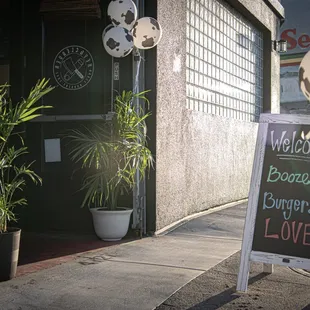 Welco
Booze
Burgers
LOVE
Se